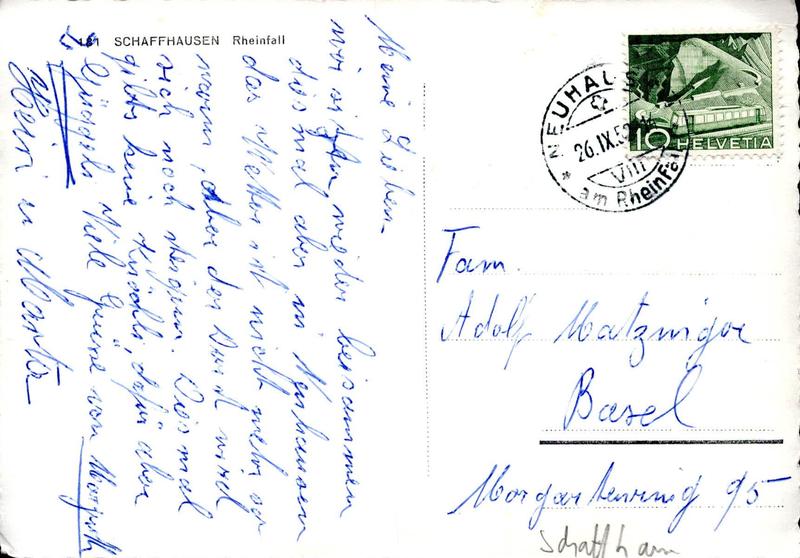 181 SCHAFFHAUSEN Rheinfall
Meine Lieben
wir sitzen wieder beisammen
diesmal aber in Neuhausen
das Wetter ist nicht mehr so
warm, aber der Durst wird
sich noch steigern. Diesmal
gibts keine, dafür aber
2 Güggels Viele Grüsse von Margrith
Heiri u Martha
NEUHAUSEN
26.IX.52
VIII
* am Rheinfall
10 HELVETIA
Fam.
Adolf Matzinger
Basel
Morgartenring 95
Schaffhausen